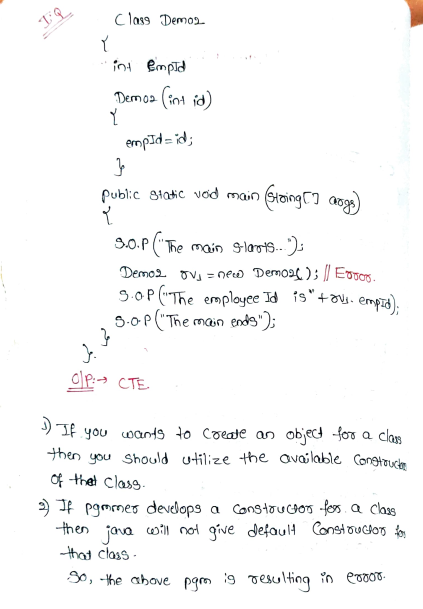 I.Q
Class Demo2
{
int EmpId
Demo2 (int id)
{
empId = id;
}
public static void main (String[] args)
{
S.O.P ("The main starts...");
Demo2 rv1 = new Demo2( ); // Error.
S.O.P ("The employee Id is" + rv1. empId);
S.O.P ("The main ends");
}
}.
O/P:→ CTE
1) If you wants to create an object for a class
then you should utilize the available Constructor
of that class.
2) If pgmmer develops a constructor for a class
then java will not give default Constructor for
that class.
So, the above pgm is resulting in error.